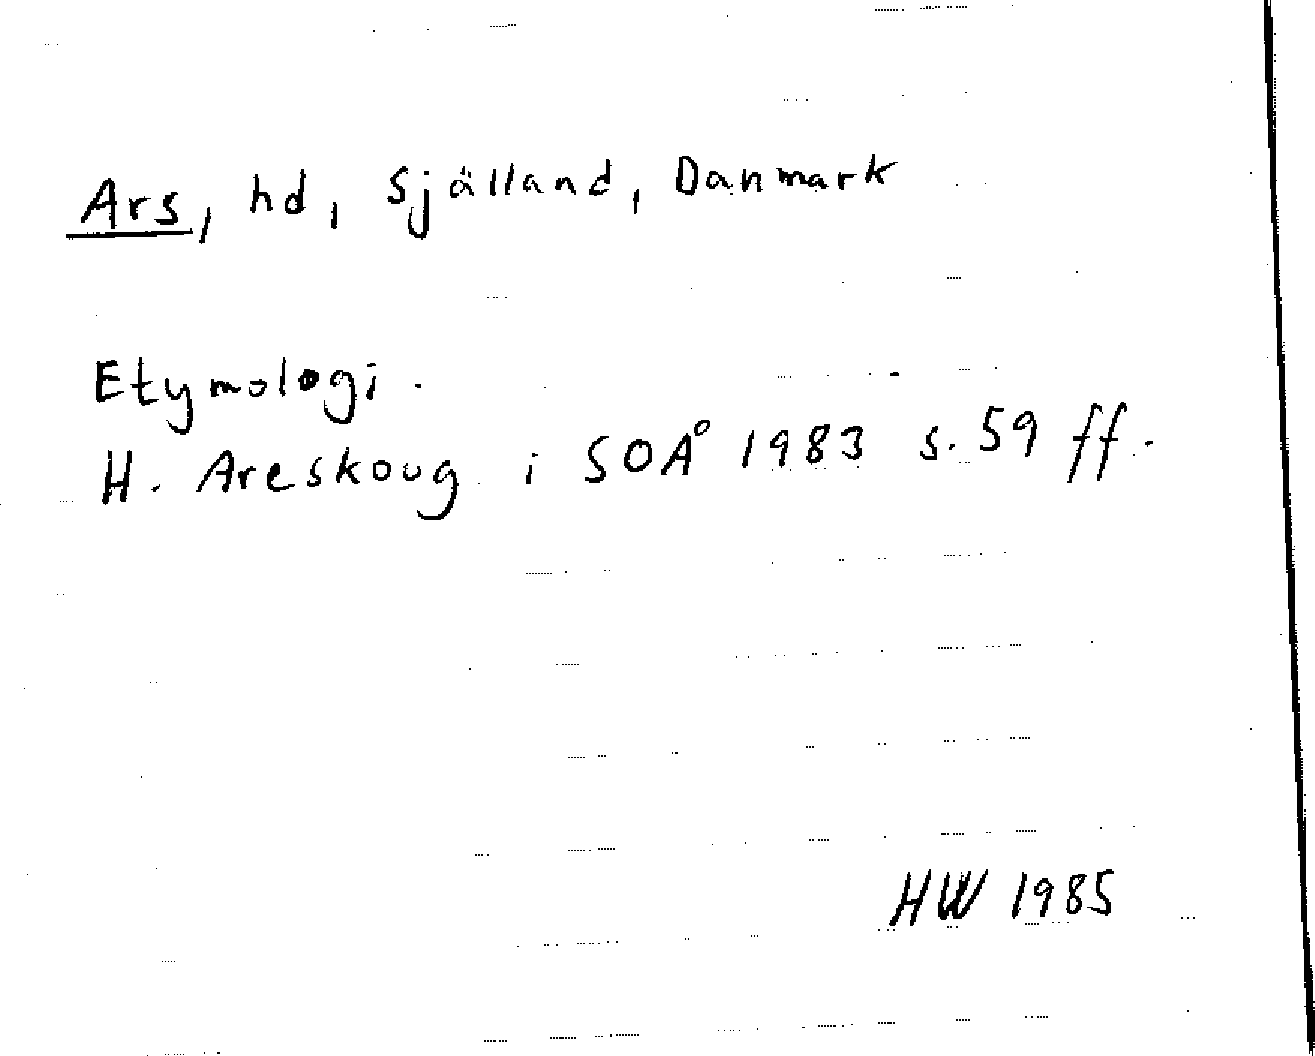 Ars, hd, Själland, Danmark
Etymologi.
H. Areskoug i SOÅ 1983 s. 59 ff.
HW 1985